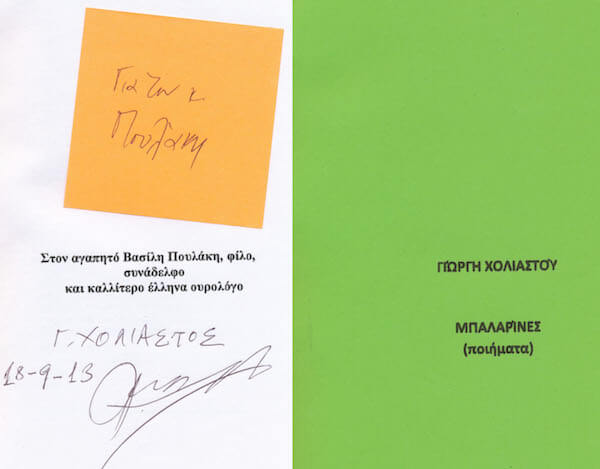 Για τον κ.
Πουλάκη
Στον αγαπητό Βασίλη Πουλάκη, φίλο,
συνάδελφο
και καλλίτερο έλληνα ουρολόγο
Γ. ΧΟΛΙΑΣΤΟΣ
18-9-13
ΓΙΏΡΓΗ ΧΟΛΙΑΣΤΟΎ
ΜΠΑΛΑΡΊΝΕΣ
(ποιήματα)